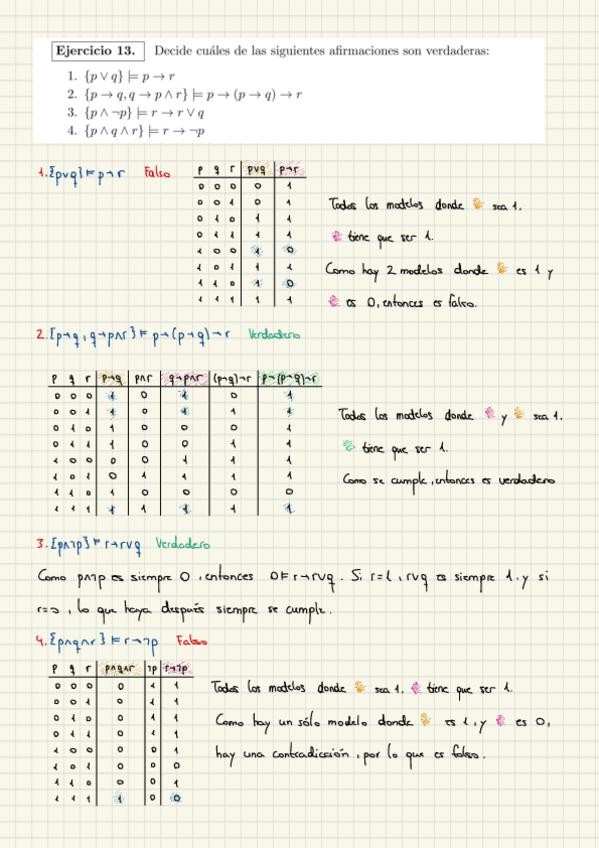 Ejercicio 13. Decide cuáles de las siguientes afirmaciones son verdaderas:
1. {p ∨ q} ⊨ p → r
2. {p → q, q → p ∧ r} ⊨ p → (p → q) → r
3. {p ∧ ¬p} ⊨ r → r ∨ q
4. {p ∧ q ∧ r} ⊨ r → ¬p
1. {p∨q} ⊨ p→r Falso
p q r p∨q p→r
0 0 0 0 1
0 0 1 0 1
0 1 0 1 1
0 1 1 1 1
1 0 0 1 0
1 0 1 1 1
1 1 0 1 0
1 1 1 1 1
Todos los modelos donde sea 1.
tiene que ser 1.
Como hay 2 modelos donde es 1 y
es 0, entonces es falso.
2. {p→q, q→p∧r} ⊨ p→(p→q)→r Verdadero
p q r p→q p∧r q→p∧r (p→q)→r p→(p→q)→r
0 0 0 1 0 1 0 1
0 0 1 1 0 1 1 1
0 1 0 1 0 0 0 1
0 1 1 1 0 0 1 1
1 0 0 0 0 1 1 1
1 0 1 0 1 1 1 1
1 1 0 1 0 0 0 0
1 1 1 1 1 1 1 1
Todos los modelos donde y sea 1.
tiene que ser 1.
Como se cumple, entonces es verdadero
3. {p∧¬p} ⊨ r→r∨q Verdadero
Como p∧¬p es siempre 0, entonces 0⊨ r→r∨q. Si r=1, r∨q es siempre 1. y si
r=0, lo que haya después siempre se cumple.
4. {p∧q∧r} ⊨ r→¬p Falso
p q r p∧q∧r ¬p r→¬p
0 0 0 0 1 1
0 0 1 0 1 1
0 1 0 0 1 1
0 1 1 0 1 1
1 0 0 0 0 1
1 0 1 0 0 0
1 1 0 0 0 1
1 1 1 1 0 0
Todos los modelos donde sea 1. tiene que ser 1.
Como hay un sólo modelo donde es 1, y es 0,
hay una contradicción, por lo que es falso.